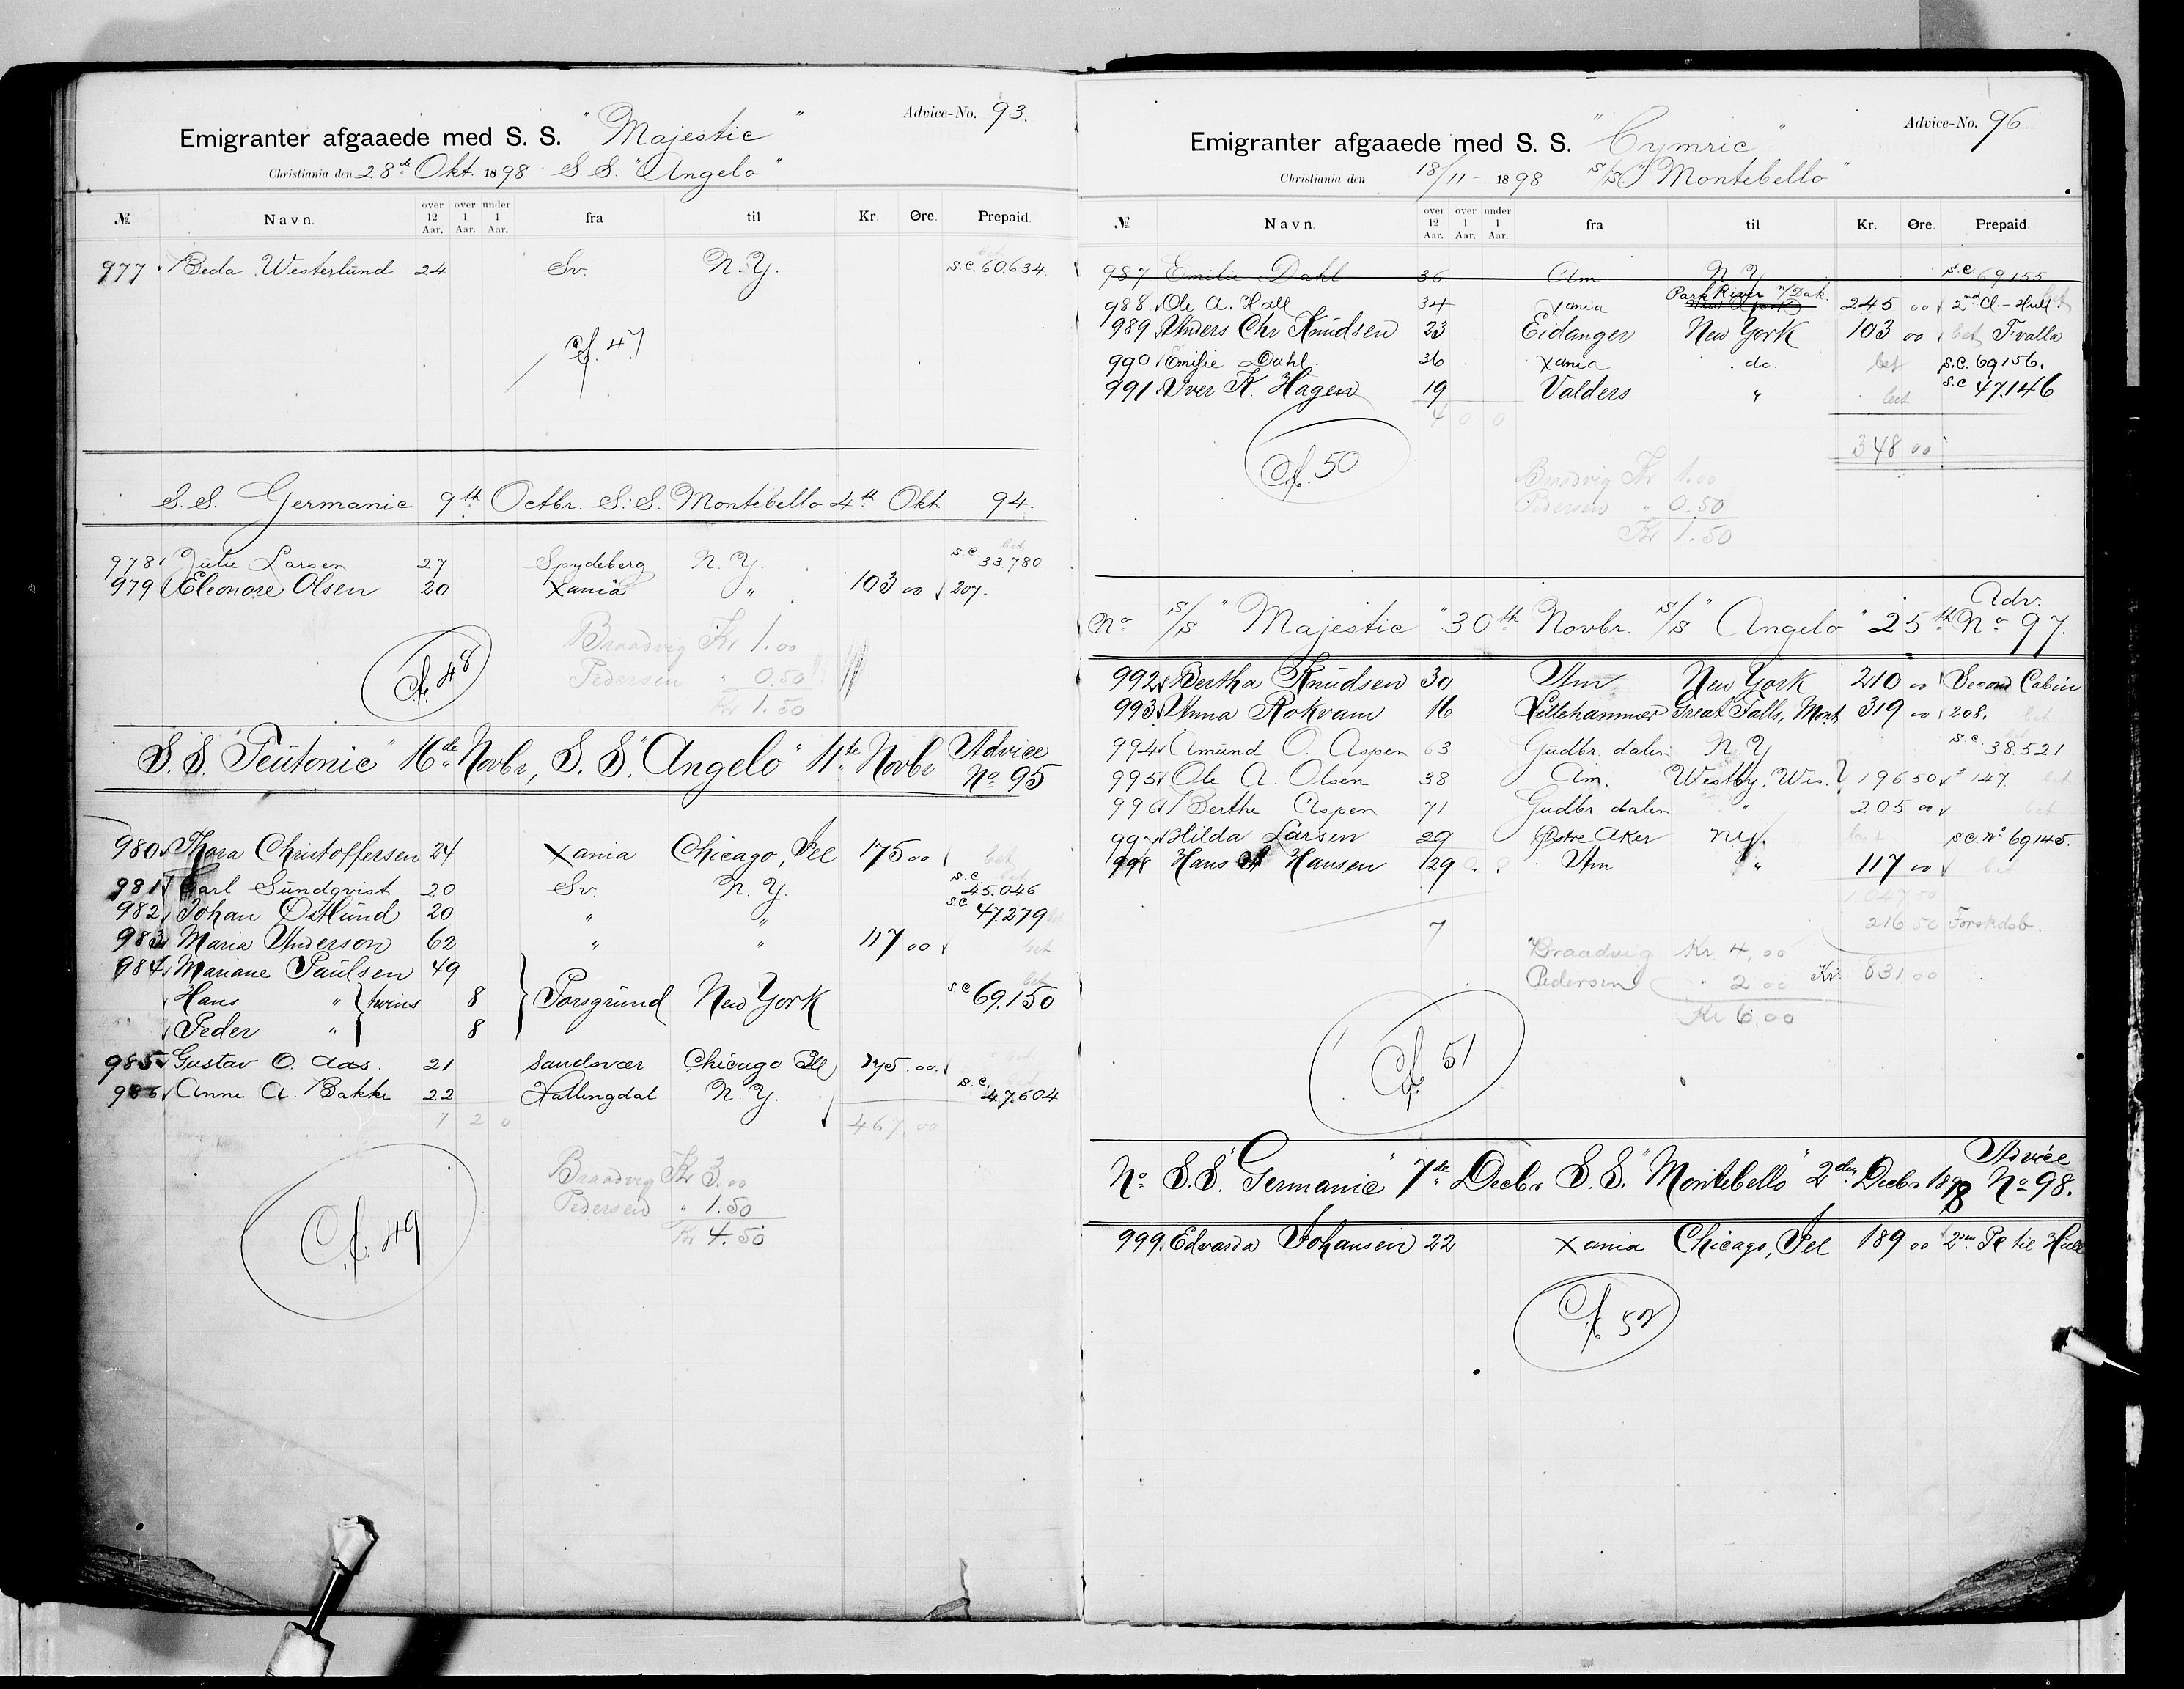 Advice-No. 93.
Emigranter afgaaede med S. S. "Majestic"
Christiania den 28de Okt. 1898 S. S. "Angelo"
№ Navn. over 12 Aar. over 1 Aar. under 1 Aar. fra til Kr. Øre. Prepaid.
bet
977 Beda Westerlund 24 Sv. N.Y. S.C. 60.634
Cf. 47
S. S. Germanic 9th Octbr. S. S. Montebello 4th Okt 94.
bet
978 Julie Larsen 27 Spydeberg N.Y. S.C 33.780
979 Eleonore Olsen 20 Xania " 103 00 207.
Braadvig Kr 1.00
Pedersen " 0.50
Kr 1.50
Cf. 48
S. S. "Teutonic" 16de Novbr, S. S. "Angelo" 11te Novbr Advice No 95
980 Thora Christoffersen 24 Xania Chicago, Ill 175 00 bet
981 Carl Sundqvist 20 Sv. N.Y. S.C. 45.046
982 Johan Östlund 20 " " S.C 47.279 bet
983 Maria Anderson 62 " " 117 00 bet
984 Mariane Paulsen 49 Porsgrund New York bet S.C 69.150
Hans " } twins 8
Peder " 8
985 Gustav O. Aas. 21 Sandsvær Chicago Ill 175.00. bet
986 Anne A. Bakke 22 Hallingdal N.Y. S.C. 47.604
7 2 0 467.00
Braadvig Kr 3.00
Pedersen " 1.50
Kr 4.50
Cf. 49
Advice-No. 96.
Emigranter afgaaede med S. S. "Cymric"
Christiania den 18/11 - 1898 S/S "Montebello"
№ Navn. over 12 Aar. over 1 Aar. under 1 Aar. fra til Kr. Øre. Prepaid.
987 Emilie Dahl 36 Am N.Y S.C 69155
988 Ole A. Hall 34 Xania Park River N/Dak. 245 00 2nd Cl - Hull. bet
989 Anders Chr Knudsen 23 Eidanger New York 103 00 bet Tvalla
990 Emilie Dahl. 36 Xania do. bet S.C. 69156.
991 Iver K. Hagen 19 Valders " bet S.C 47.146
4 0 0
348 00
Cf. 50
Braadvig Kr 1.00
Pedersen " 0.50
Kr 1.50
No S/S. "Majestic" 30th Novbr. S/S "Angelo" 25th Adv. No 97.
992 Bertha Knudsen 30 Am New York 210 00 Second Cabin
993 Anna Rokvam 16 Lillehammer Great Falls, Mont 319 00 208. bet
994 Amund O. Aspen 63 Gudbr. dalen N.Y S.C. 38.521
995 Ole A. Olsen 38 Am. Westby, Wis. 196 50 " 147. bet
996 Berthe Aspen 71 Gudbr. dalen " 205 00 bet
997 Hilda Larsen 29 Østre Aker N.Y. bet S.C. No 69145.
998 Hans A Hansen 29 Am " 117 00 bet
1.047 50
7 216 50 Forskdsb.
Braadvig Kr 4,00 Kr. 831 00
Pedersen " 2.00
Kr 6,00
Cf 51
No S. S. "Germanic" 7de Decbr S. S. "Montebello" 2den Decbr 1898 Advice No 98.
999. Edvarda Johansen 22 Xania Chicago, Ill 189 00 2den Pl til Hull
Cf 52